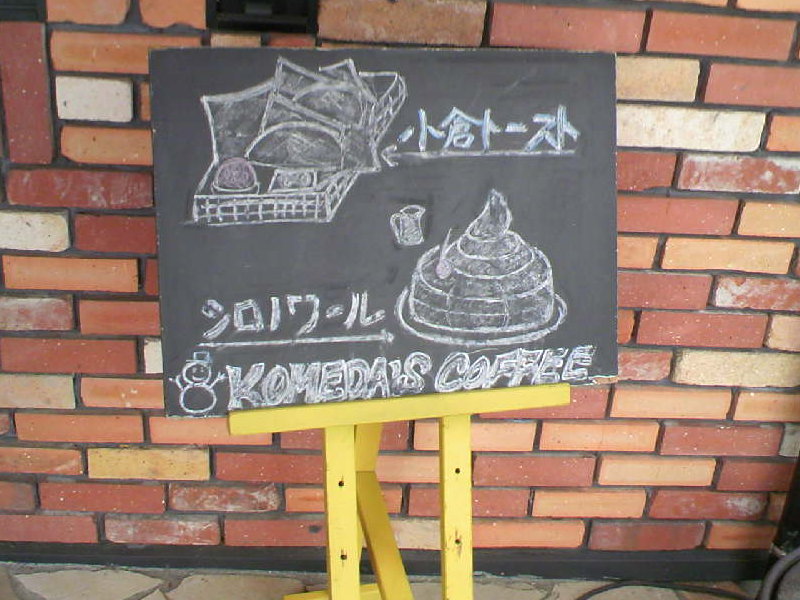 小倉トースト
シロノワール
KOMEDA'S COFFEE